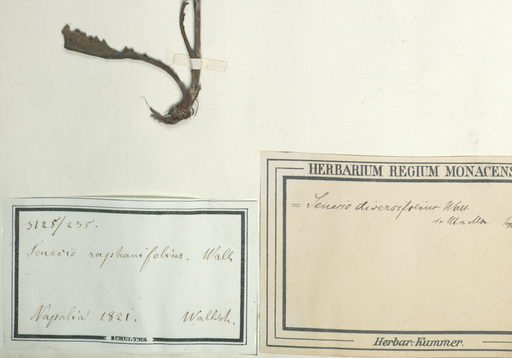 3125/235.
Senecio raphanifolius. Wall.
Napalia 1821. Wallich.
SCHULTES
HERBARIUM REGIUM MONACENS
= Senecio diversifolius Wall.
in
Herbar: Kummer.